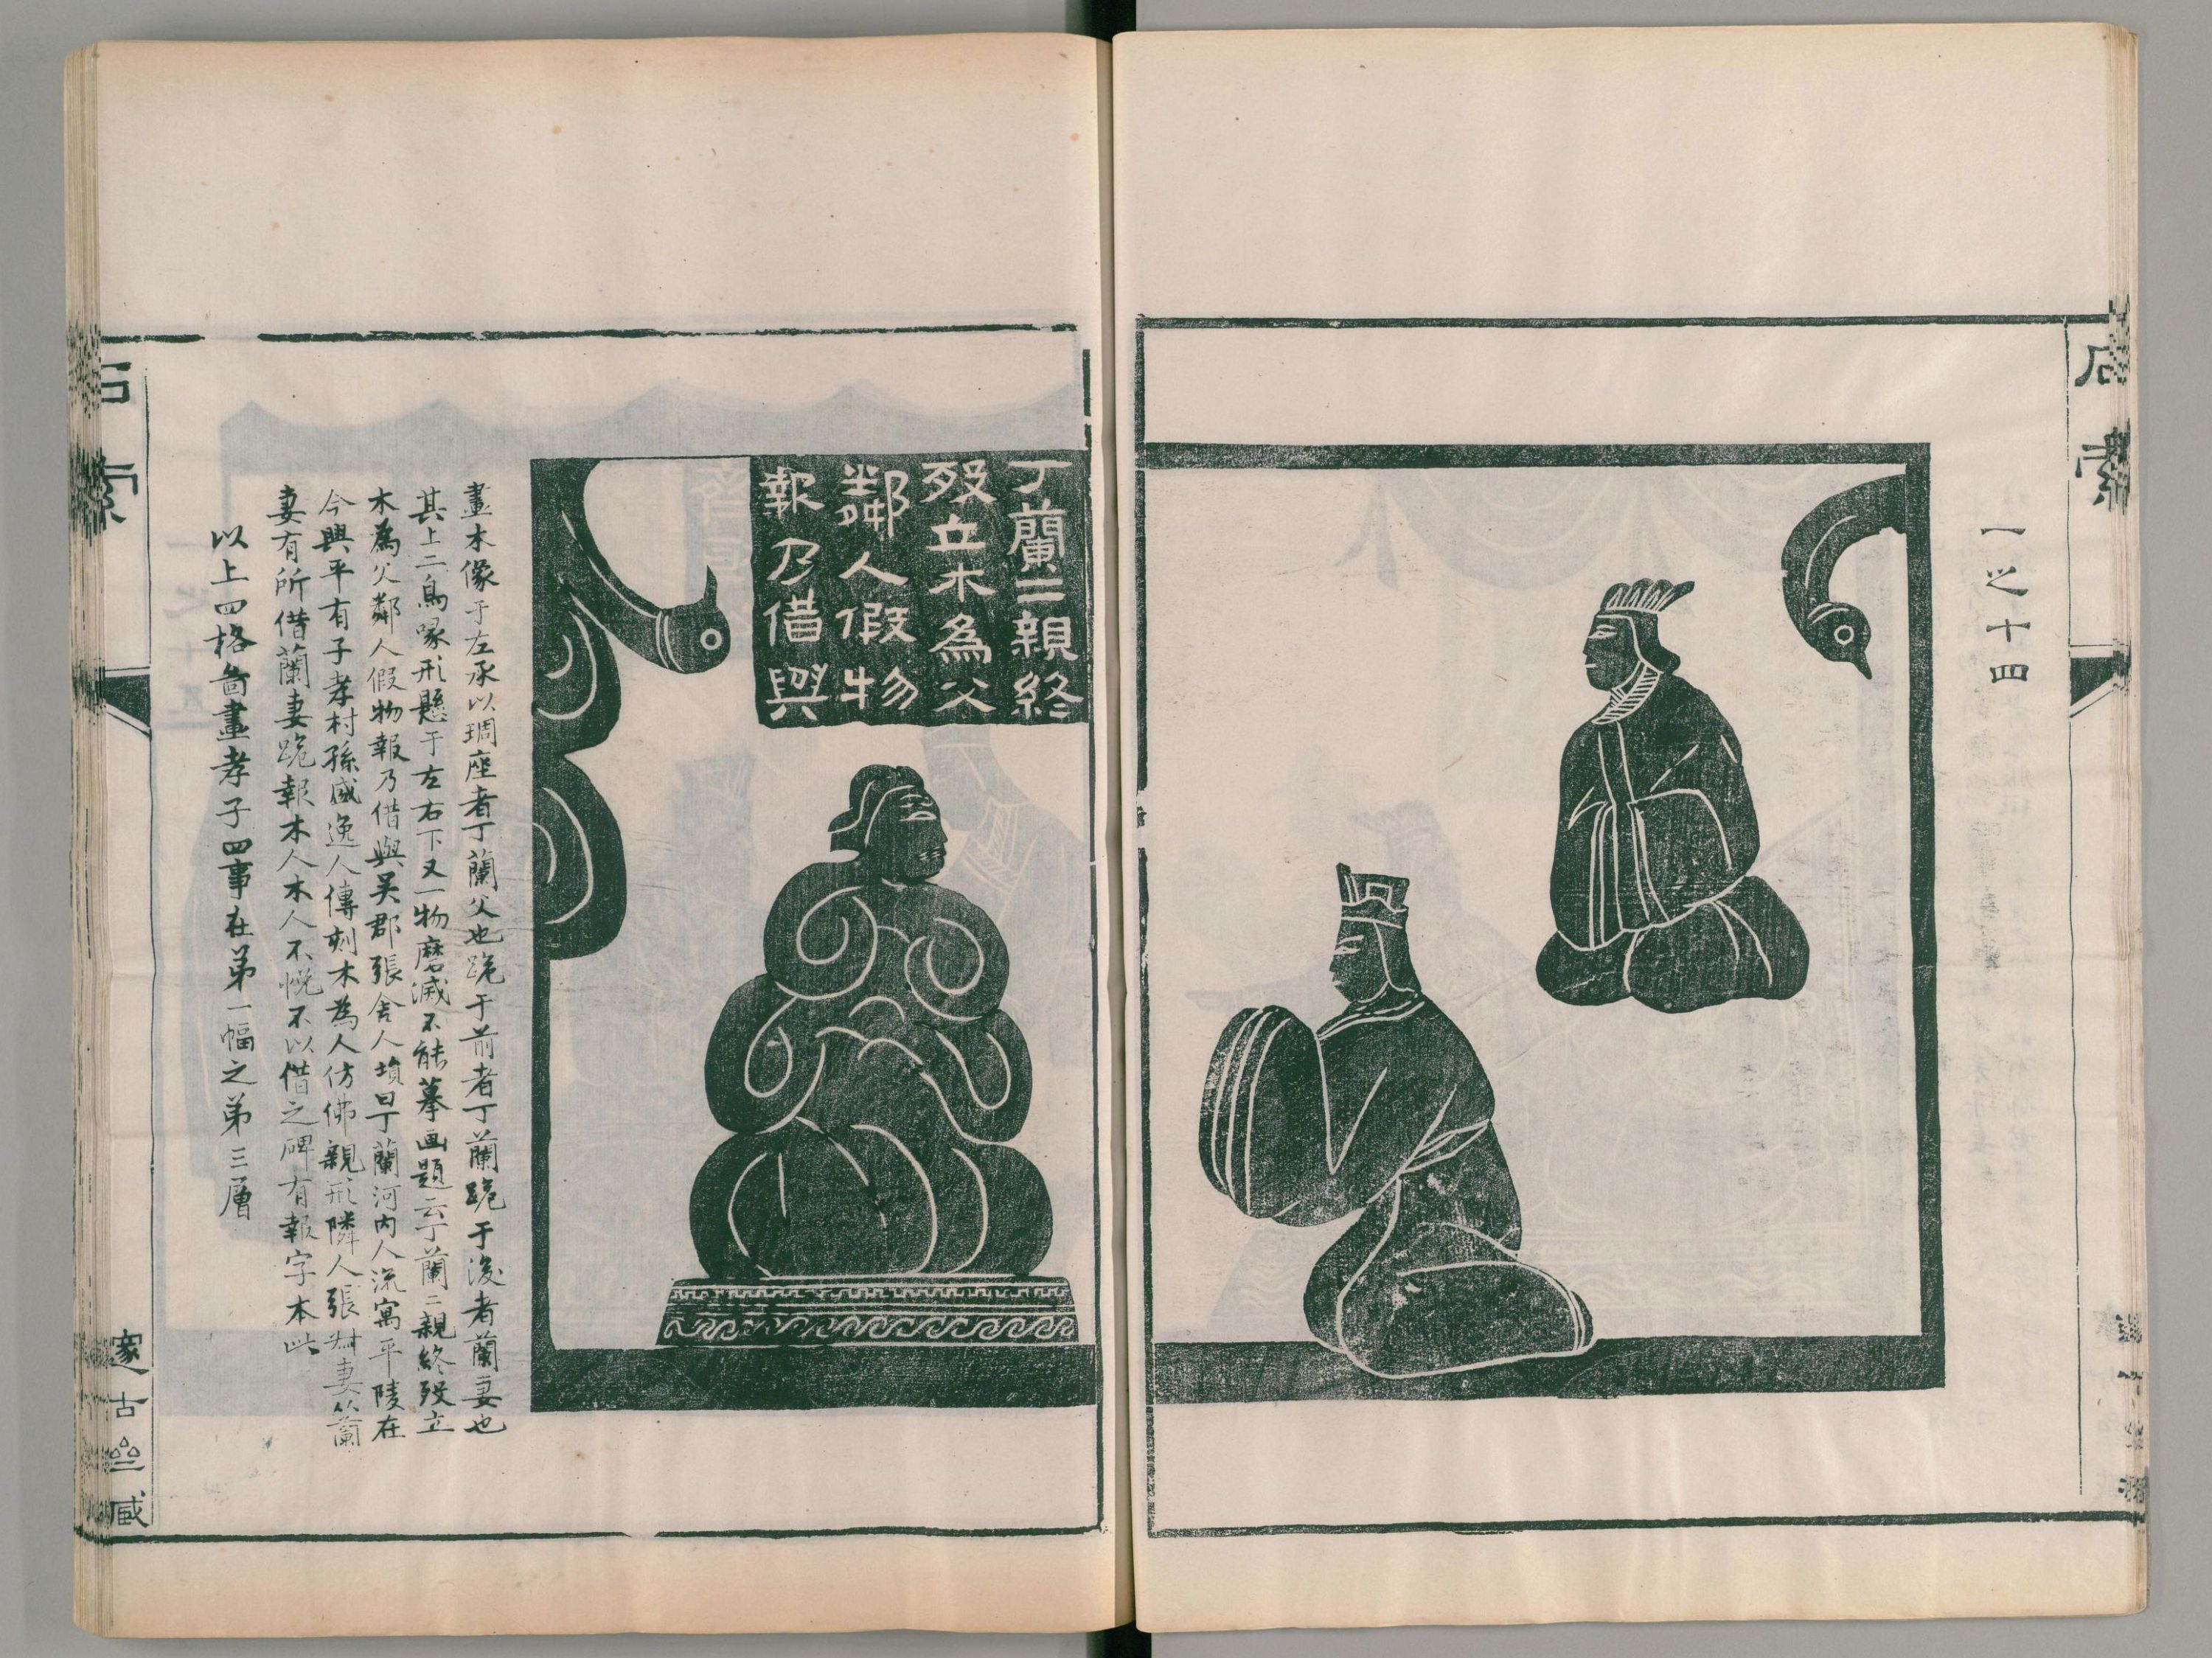 石索
一之十四
丁蘭二親終
歿立木為父
鄰人假物
報乃借與
畫木像于左承以琱座者丁蘭父也跪于前者丁蘭跪于後者蘭妻也
其上二鳥喙形懸于左右下又一物磨滅不能摹画題云丁蘭二親終歿立
木為父鄰人假物報乃借與吴郡張舍人塤曰丁蘭河內人流寓平陵在
今興平有子孝村孫盛逸人傳刻木為人仿佛親形隣人張叔妻蘭
妻有所借蘭妻跪報木人木人不悅不以借之碑有報字本此
以上四格啚畫孝子四事在弟一幅之弟三層
石索
邃古亝臧